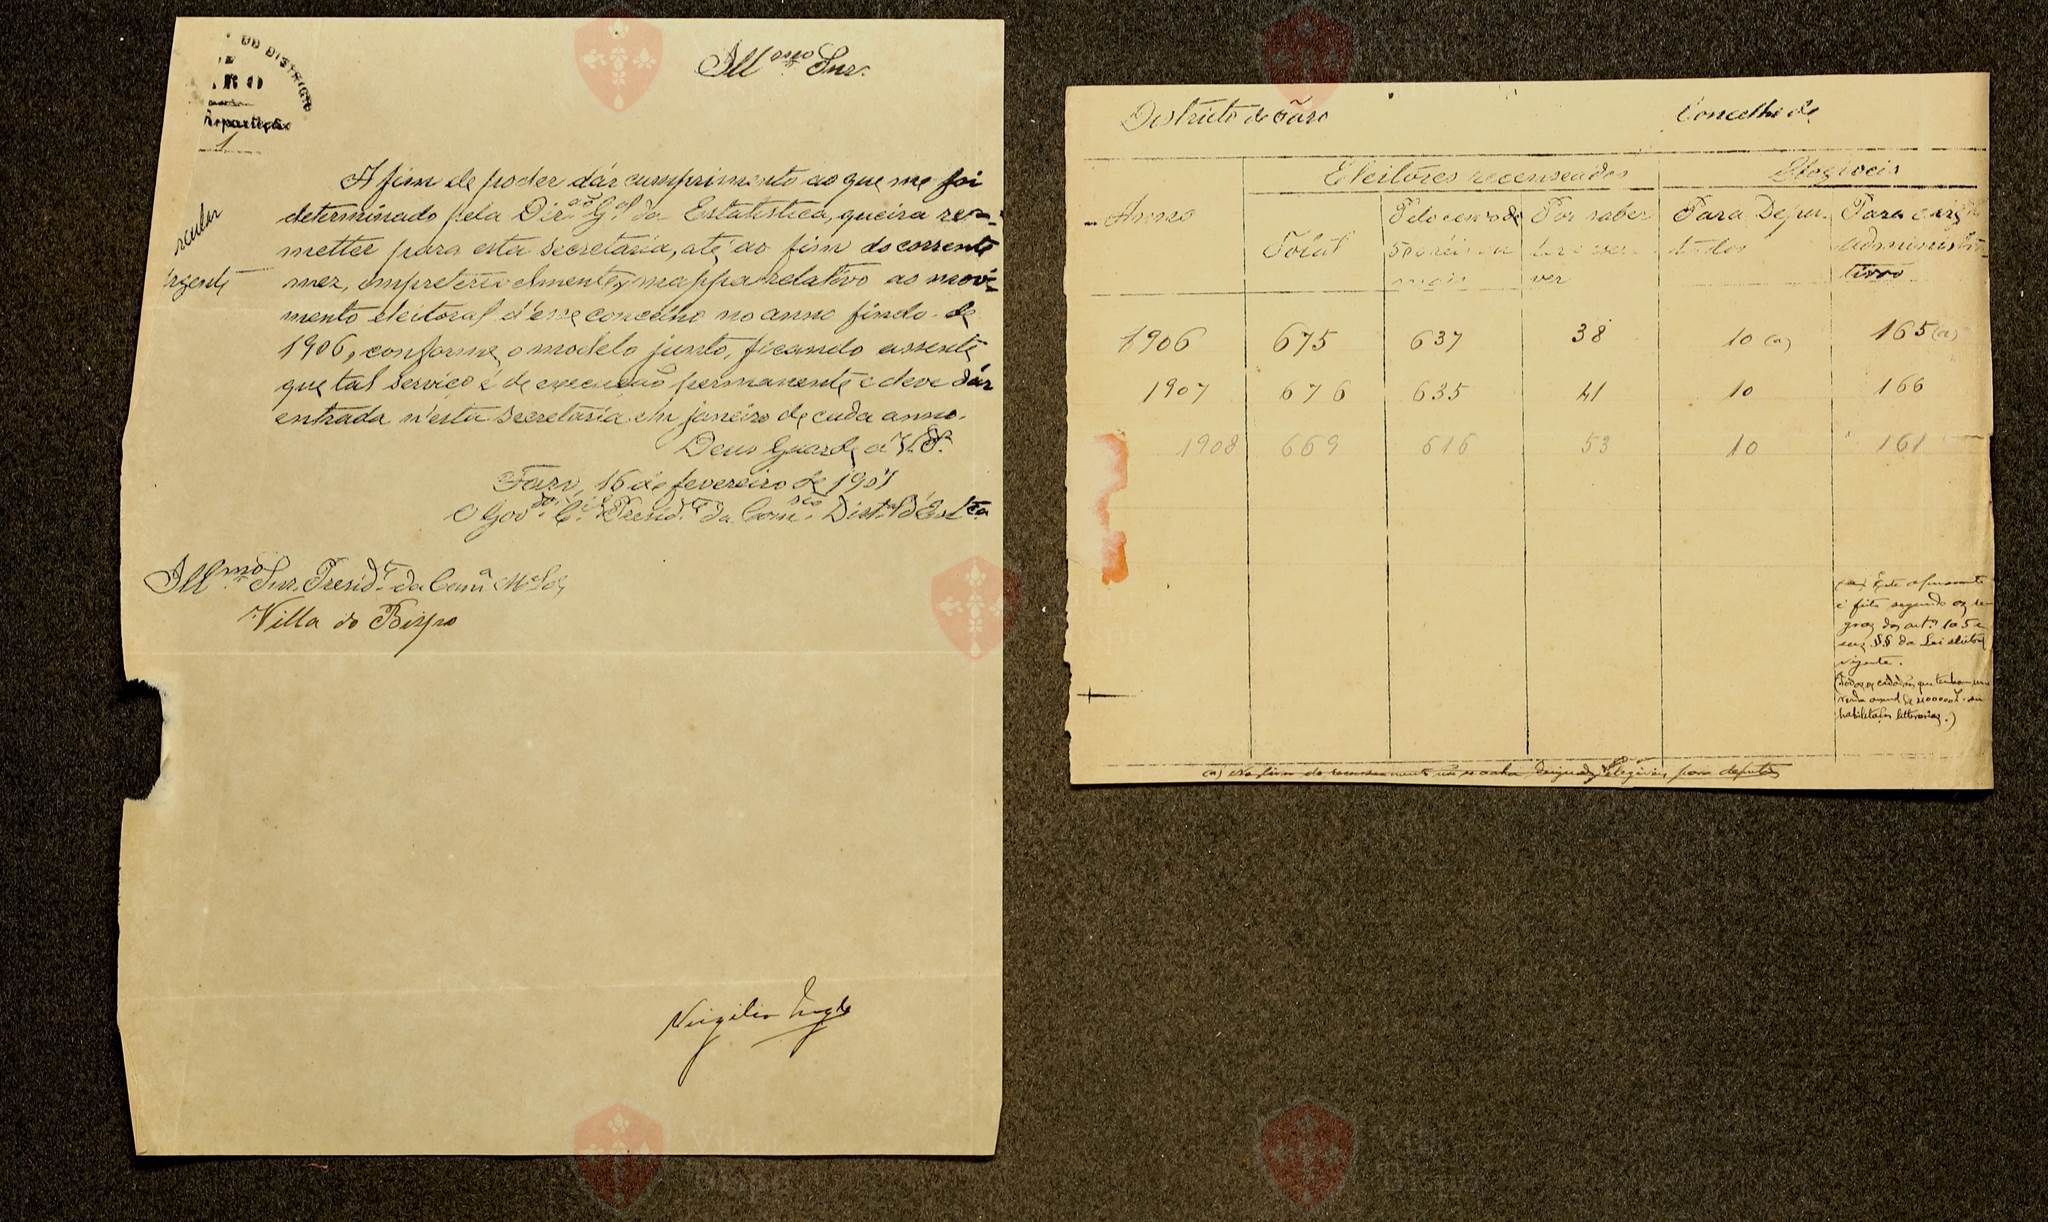 DO DISTRICTO
Repartição
1
Ill.mo Snr.
A fim de poder dár cumprimento ao que me foi
determinado pela Dir.ão G.al da Estatistica, queira re-
metter para esta secretaria, até ao fim do corrente
mez, impreterivelmente, mappa relativo ao movi-
mento eleitoral d'esse concelho no anno findo de
1906, conforme o modelo junto, ficando assente
que tal serviço é de execução permanente e deve dár
entrada n'esta secretaria em janeiro de cada anno.
Deus Guarde a V. S.ª
Faro, 16 de fevereiro de 1907
O Gov.dor C.il Presid.te da Com.são Dist.al d'Est.ca
Ill.mo Snr. Presid.te da Cam.ª M.al de
Villa do Bispo
Virgilio Inglez
Districto de Faro
Concelho de
Eleitores recenseados
Elegiveis
Anno
Total
Pelo censo de 500 réis ou mais
Por saber ler e escrever
Para Deputados
Para cargos administrativos
1906 675 637 38 10 (a) 165 (a)
1907 676 635 41 10 166
1908 669 616 53 10 161
(a) Este apuramento
é feito segundo as re-
gras do art.º 10 5 e
seus §§ da Lei eleitoral
vigente.
(Todos os cidadãos que tenham
renda annual de ou
habilitações litterarias.)
(a) No fim do recenseamento não se acha elegiveis para deputados